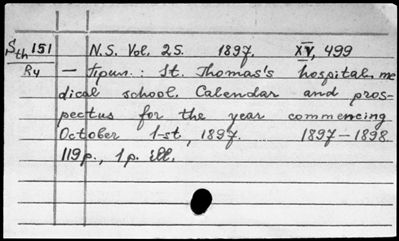 Sth 151 N.S. Vol. 25. 1897. XV, 499
R4 — Прил.: St. Thomas's hospital me
dical school. Calendar and pros-
pectus for the year commencing
October 1-st, 1897. 1897-1898
119 p., 1 p. ill.